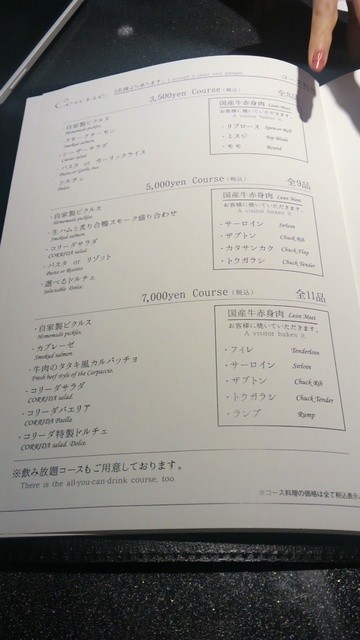 2名様より承ります。
3,500yen Course (税込)
・自家製ピクルス
Homemade pickles.
・スモークサーモン
Smoked salmon.
・シーザーサラダ
Caesar salad.
・パスタ or ガーリックライス
・ドルチェ
Dolce.
国産牛赤身肉 Lean Meat
お客様に焼いていただきます。
A visitor bakes it.
・リブロース Spencer Roll
・ミスジ Top Blade
・モモ Round
5,000yen Course (税込) 全9品
・自家製ピクルス
Homemade pickles.
・生ハムと炙り合鴨スモーク盛り合わせ
Smoked salmon.
・コリーダサラダ
CORRIDA salad.
・パスタ or リゾット
Pasta or Risotto.
・選べるドルチェ
Selectable Dolce.
国産牛赤身肉 Lean Meat
お客様に焼いていただきます。
A visitor bakes it.
・サーロイン Sirloin
・ザブトン Chuck Rib
・カタサンカク Chuck Flap
・トウガラシ Chuck Tender
7,000yen Course (税込) 全11品
・自家製ピクルス
Homemade pickles.
・カプレーゼ
Smoked salmon.
・牛肉のタタキ風カルパッチョ
Fresh beef style of the Carpaccio.
・コリーダサラダ
CORRIDA salad.
・コリーダパエリア
CORRIDA Paella.
・コリーダ特製ドルチェ
CORRIDA salad. Dolce.
国産牛赤身肉 Lean Meat
お客様に焼いていただきます。
A visitor bakes it.
・フィレ Tenderloin
・サーロイン Sirloin
・ザブトン Chuck Rib
・トウガラシ Chuck Tender
・ランプ Rump
※飲み放題コースもご用意しております。
There is the all-you-can-drink course, too.
※コース料理の価格は全て税込表示